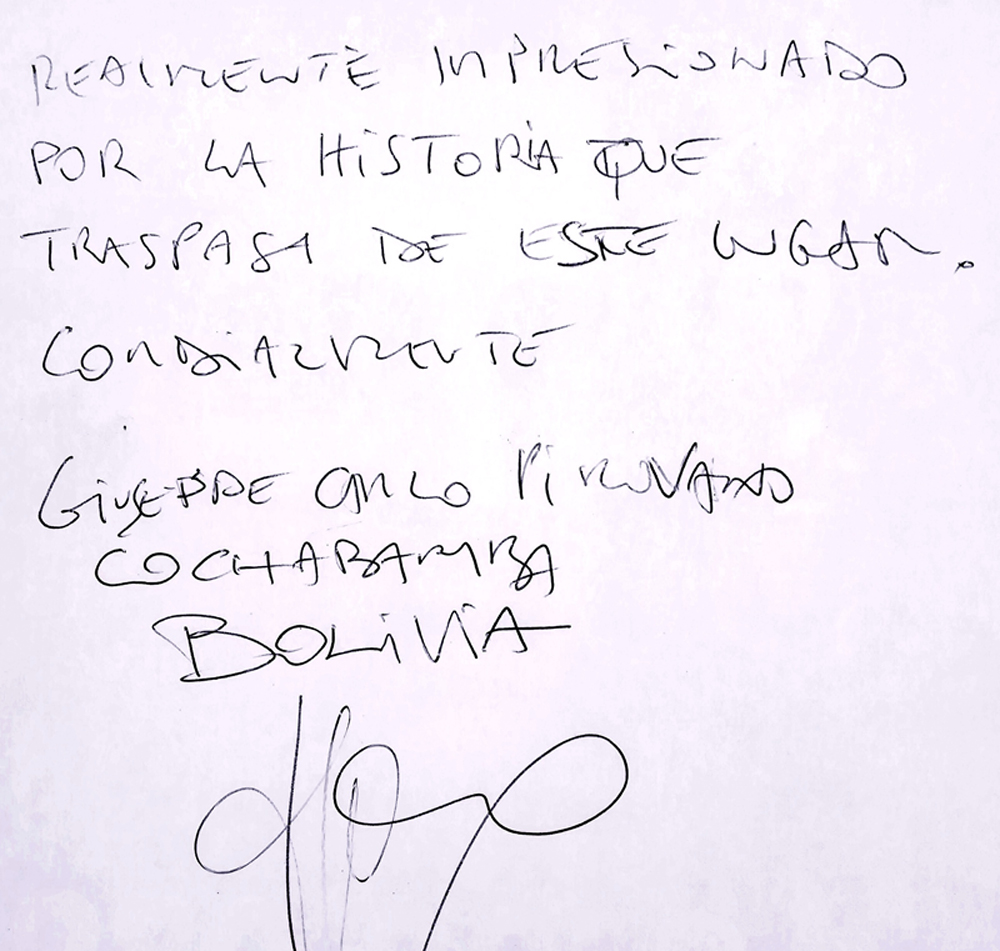 REALMENTE INPRESIONADO
POR LA HISTORIA QUE
TRASPASA DE ESTE LUGAR.
CORDIALMENTE
GIUSEPPE CARLO PIROVANO
COCHABAMBA
BOLIVIA